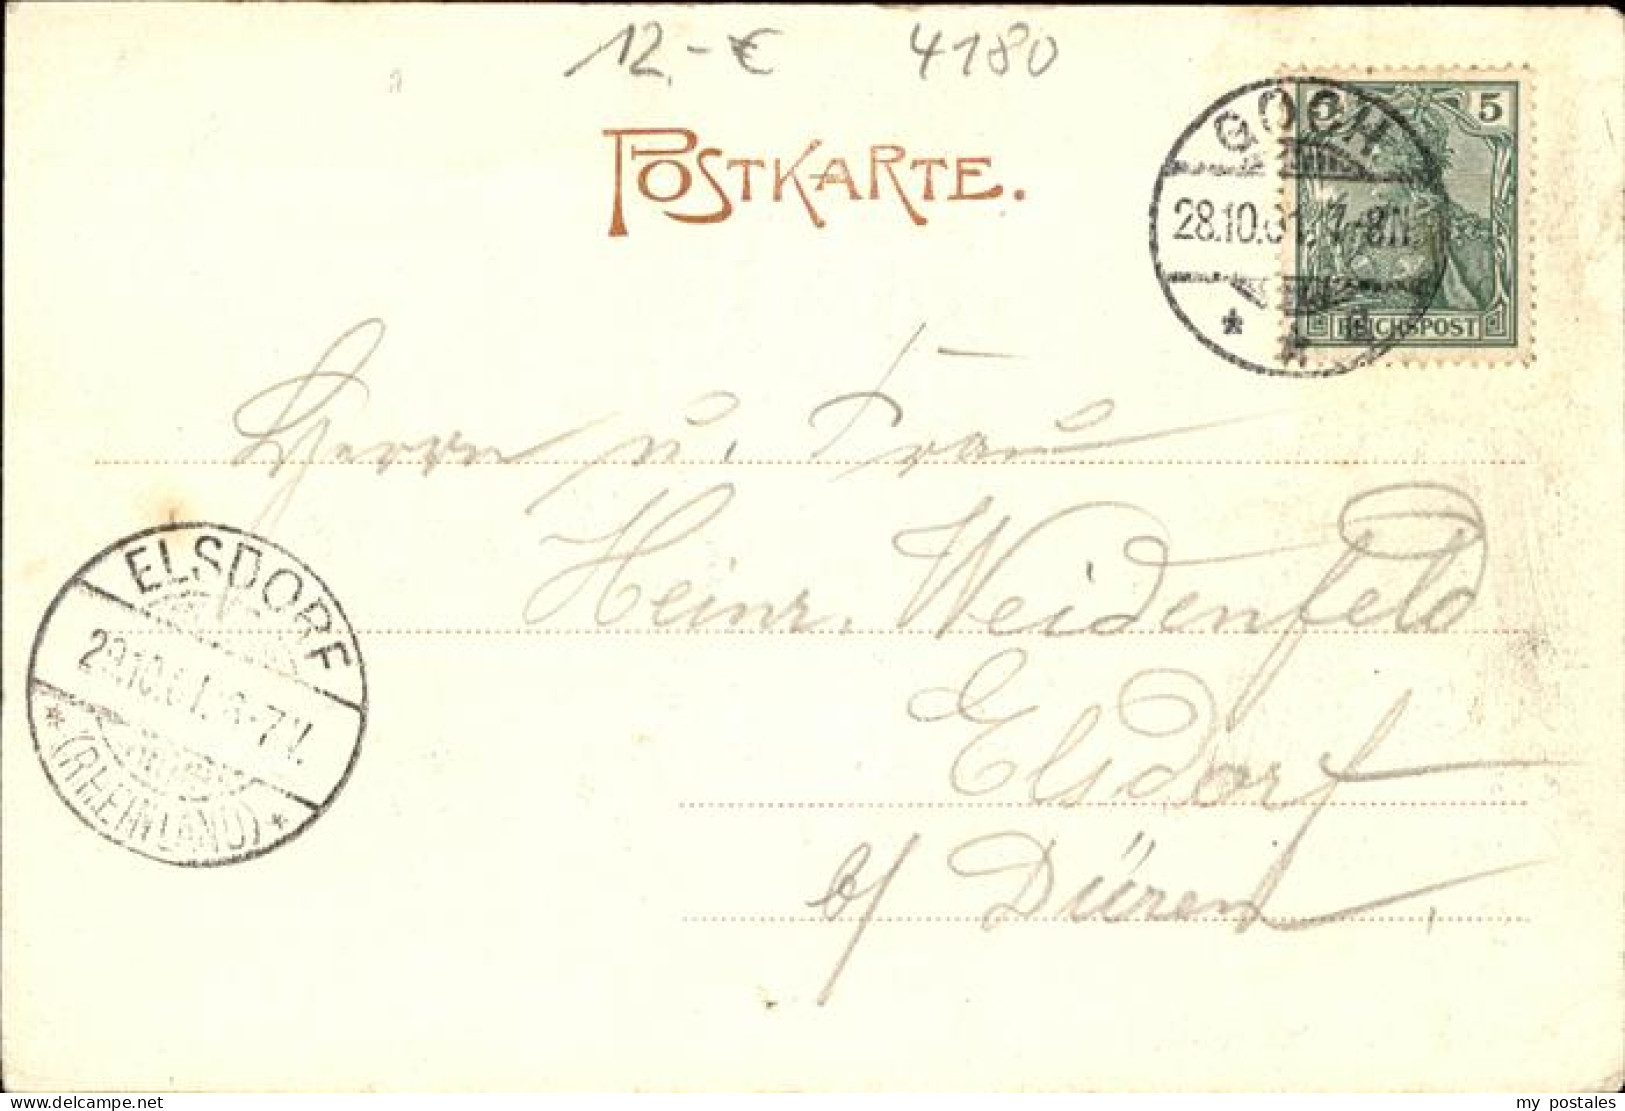 12,-€ 4180
POSTKARTE.
GOCH
28.10.01. 7-8N.
5
REICHSPOST
Herrn u. Frau
Heinr. Weidenfeld
Elsdorf
b/ Düren
ELSDORF
29.10.01. 6-7V.
(RHEINLAND)
my postales